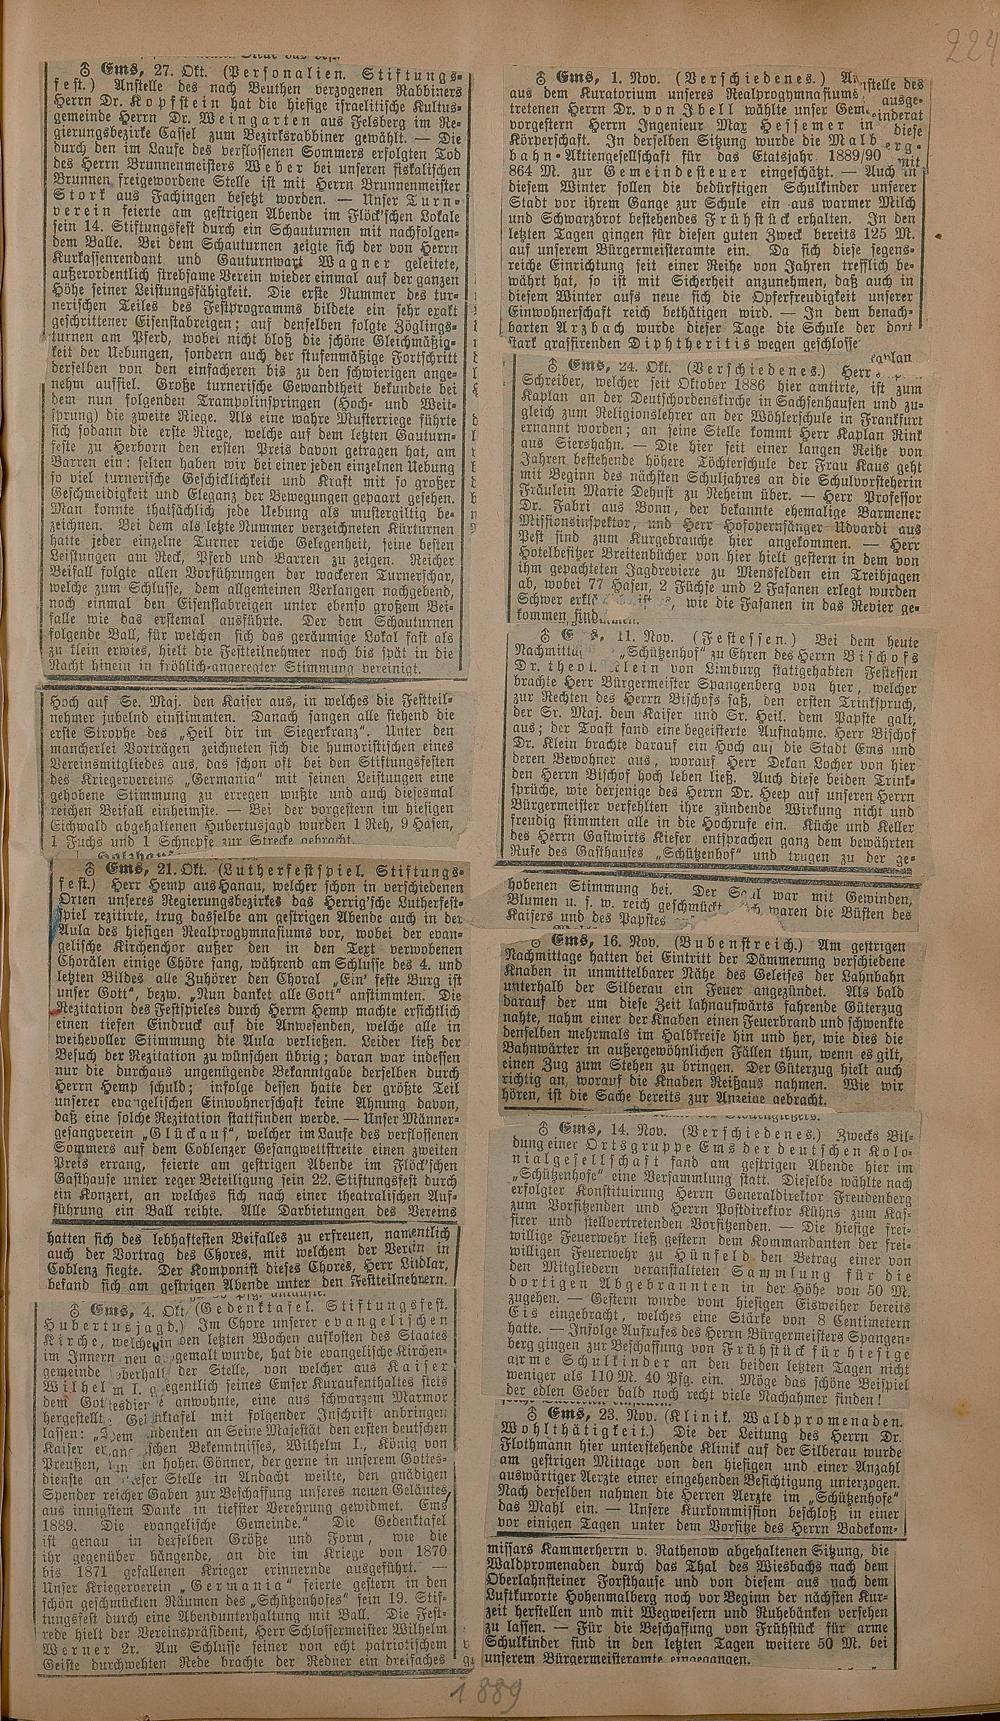 224
♁ Ems, 27. Okt. (Personalien. Stiftungs-
fest.) Anstelle des nach Beuthen verzogenen Rabbiners
Herrn Dr. Kopfstein hat die hiesige israelitische Kultus-
gemeinde Herrn Dr. Weingarten aus Felsberg im Re-
gierungsbezirke Cassel zum Bezirksrabbiner gewählt. — Die
durch den im Laufe des verflossenen Sommers erfolgten Tod
des Herrn Brunnenmeisters Weber bei unseren fiskalischen
Brunnen freigewordene Stelle ist mit Herrn Brunnenmeister
Stork aus Fachingen besetzt worden. — Unser Turn-
verein feierte am gestrigen Abende im Flöck'schen Lokale
sein 14. Stiftungsfest durch ein Schauturnen mit nachfolgen-
dem Balle. Bei dem Schauturnen zeigte sich der von Herrn
Kurkassenrendant und Gauturnwart Wagner geleitete,
außerordentlich strebsame Verein wieder einmal auf der ganzen
Höhe seiner Leistungsfähigkeit. Die erste Nummer des tur-
nerischen Teiles des Festprogramms bildete ein sehr exakt
geschrittener Eisenstabreigen; auf denselben folgte Zöglings-
turnen am Pferd, wobei nicht bloß die schöne Gleichmäßig-
keit der Uebungen, sondern auch der stufenmäßige Fortschritt
derselben von den einfacheren bis zu den schwierigen ange-
nehm auffiel. Große turnerische Gewandtheit bekundete bei
dem nun folgenden Trampolinspringen (Hoch- und Weit-
sprung) die zweite Riege. Als eine wahre Musterriege führte
sich sodann die erste Riege, welche auf dem letzten Gauturn-
feste zu Herborn den ersten Preis davon getragen hat, am
Barren ein; selten haben wir bei einer jeden einzelnen Uebung
so viel turnerische Geschicklichkeit und Kraft mit so großer
Geschmeidigkeit und Eleganz der Bewegungen gepaart gesehen.
Man konnte thatsächlich jede Uebung als mustergiltig be-
zeichnen. Bei dem als letzte Nummer verzeichneten Kürturnen
hatte jeder einzelne Turner reiche Gelegenheit, seine besten
Leistungen am Reck, Pferd und Barren zu zeigen. Reicher
Beifall folgte allen Vorführungen der wackeren Turnerschar,
welche zum Schlusse, dem allgemeinen Verlangen nachgebend,
noch einmal den Eisenstabreigen unter ebenso großem Bei-
falle wie das erstemal ausführte. Der dem Schauturnen
folgende Ball, für welchen sich das geräumige Lokal fast als
zu klein erwies, hielt die Festteilnehmer noch bis spät in die
Nacht hinein in fröhlich-angeregter Stimmung vereinigt.
Hoch auf Se. Maj. den Kaiser aus, in welches die Festteil-
nehmer jubelnd einstimmten. Danach sangen alle stehend die
erste Strophe des „Heil dir im Siegerkranz“. Unter den
mancherlei Vorträgen zeichneten sich die humoristischen eines
Vereinsmitgliedes aus, das schon oft bei den Stiftungsfesten
des Kriegervereins „Germania“ mit seinen Leistungen eine
gehobene Stimmung zu erregen wußte und auch diesesmal
reichen Beifall einheimste. — Bei der vorgestern im hiesigen
Eichwald abgehaltenen Hubertusjagd wurden 1 Reh, 9 Hasen,
1 Fuchs und 1 Schnepfe zur Strecke gebracht.
♁ Ems, 21. Okt. (Lutherfestspiel. Stiftungs-
fest.) Herr Hemp aus Hanau, welcher schon in verschiedenen
Orten unseres Regierungsbezirkes das Herrig'sche Lutherfest-
spiel rezitirte, trug dasselbe am gestrigen Abende auch in der
Aula des hiesigen Realprogymnasiums vor, wobei der evan-
gelische Kirchenchor außer den in den Text verwobenen
Chorälen einige Chöre sang, während am Schlusse des 4. und
letzten Bildes alle Zuhörer den Choral „Ein' feste Burg ist
unser Gott“, bezw. „Nun danket alle Gott“ anstimmten. Die
Rezitation des Festspieles durch Herrn Hemp machte ersichtlich
einen tiefen Eindruck auf die Anwesenden, welche alle in
weihevoller Stimmung die Aula verließen. Leider ließ der
Besuch der Rezitation zu wünschen übrig; daran war indessen
nur die durchaus ungenügende Bekanntgabe derselben durch
Herrn Hemp schuld; infolge dessen hatte der größte Teil
unserer evangelischen Einwohnerschaft keine Ahnung davon,
daß eine solche Rezitation stattfinden werde. — Unser Männer-
gesangverein „Glückauf“, welcher im Laufe des verflossenen
Sommers auf dem Coblenzer Gesangwettstreite einen zweiten
Preis errang, feierte am gestrigen Abende im Flöck'schen
Gasthause unter reger Beteiligung sein 22. Stiftungsfest durch
ein Konzert, an welches sich nach einer theatralischen Auf-
führung ein Ball reihte. Alle Darbietungen des Vereins
hatten sich des lebhaftesten Beifalles zu erfreuen, namentlich
auch der Vortrag des Chores, mit welchem der Verein in
Coblenz siegte. Der Komponist dieses Chores, Herr Lindlar,
befand sich am gestrigen Abende unter den Festteilnehmern.
♁ Ems, 4. Okt. (Gedenktafel. Stiftungsfest.
Hubertusjagd.) Im Chore unserer evangelischen
Kirche, welche in den letzten Wochen aufkosten des Staates
im Innern neu gemalt wurde, hat die evangelische Kirchen-
gemeinde oberhalb der Stelle, von welcher aus Kaiser
Wilhelm I. gelegentlich seines Emser Kuraufenthaltes stets
dem Gottesdienste anwohnte, eine aus schwarzem Marmor
hergestellte Gedenktafel mit folgender Inschrift anbringen
lassen: „Dem Andenken an Seine Majestät den ersten deutschen
Kaiser evang. schen Bekenntnisses, Wilhelm I., König von
Preußen, en hohen Gönner, der gerne in unserem Gottes-
dienste an dieser Stelle in Andacht weilte, den gnädigen
Spender reicher Gaben zur Beschaffung unseres neuen Geläutes,
aus innigstem Danke in tiefster Verehrung gewidmet. Ems
1889. Die evangelische Gemeinde.“ Die Gedenktafel
ist genau in derselben Größe und Form, wie die
ihr gegenüber hängende, an die im Kriege von 1870
bis 1871 gefallenen Krieger erinnernde ausgeführt. —
Unser Kriegerverein „Germania“ feierte gestern in den
schön geschmückten Räumen des „Schützenhofes“ sein 19. Stif-
tungsfest durch eine Abendunterhaltung mit Ball. Die Fest-
rede hielt der Vereinspräsident, Herr Schlossermeister Wilhelm
Werner 2r. Am Schlusse seiner von echt patriotischem
Geiste durchwehten Rede brachte der Redner ein dreifaches
♁ Ems, 1. Nov. (Verschiedenes.) Anstelle des
aus dem Kuratorium unseres Realprogymnasiums ausge-
tretenen Herrn Dr. von Ibell wählte unser Gemeinderat
vorgestern Herrn Ingenieur Max Hessemer in diese
Körperschaft. In derselben Sitzung wurde die Malberg-
bahn-Aktiengesellschaft für das Etatsjahr 1889/90 mit
864 M. zur Gemeindesteuer eingeschätzt. — Auch in
diesem Winter sollen die bedürftigen Schulkinder unserer
Stadt vor ihrem Gange zur Schule ein aus warmer Milch
und Schwarzbrot bestehendes Frühstück erhalten. In den
letzten Tagen gingen für diesen guten Zweck bereits 125 M.
auf unserem Bürgermeisteramte ein. Da sich diese segens-
reiche Einrichtung seit einer Reihe von Jahren trefflich be-
währt hat, so ist mit Sicherheit anzunehmen, daß auch in
diesem Winter aufs neue sich die Opferfreudigkeit unserer
Einwohnerschaft reich bethätigen wird. — In dem benach-
barten Arzbach wurde dieser Tage die Schule der dort
stark grassirenden Diphtheritis wegen geschlosse
♁ Ems, 24. Okt. (Verschiedenes.) Herr Kaplan
Schreiber, welcher seit Oktober 1886 hier amtirte, ist zum
Kaplan an der Deutschordenskirche in Sachsenhausen und zu-
gleich zum Religionslehrer an der Wöhlerschule in Frankfurt
ernannt worden; an seine Stelle kommt Herr Kaplan Rink
aus Siershahn. — Die hier seit einer langen Reihe von
Jahren bestehende höhere Töchterschule der Frau Kaus geht
mit Beginn des nächsten Schuljahres an die Schulvorsteherin
Fräulein Marie Dehust zu Neheim über. — Herr Professor
Dr. Fabri aus Bonn, der bekannte ehemalige Barmener
Missionsinspektor, und Herr Hofopernsänger Udvardi aus
Pest sind zum Kurgebrauche hier angekommen. — Herr
Hotelbesitzer Breitenbücher von hier hielt gestern in dem von
ihm gepachteten Jagdreviere zu Mensfelden ein Treibjagen
ab, wobei 77 Hasen, 2 Füchse und 2 Fasanen erlegt wurden
Schwer erklä ist, wie die Fasanen in das Revier ge-
kommen sind.
♁ Ems, 11. Nov. (Festessen.) Bei dem heute
Nachmittag „Schützenhof“ zu Ehren des Herrn Bischofs
Dr. theol. Klein von Limburg stattgehabten Festessen
brachte Herr Bürgermeister Spangenberg von hier, welcher
zur Rechten des Herrn Bischofs saß, den ersten Trinkspruch,
der Sr. Maj. dem Kaiser und Sr. Heil. dem Papste galt,
aus; der Toast fand eine begeisterte Aufnahme. Herr Bischof
Dr. Klein brachte darauf ein Hoch auf die Stadt Ems und
deren Bewohner aus, worauf Herr Dekan Locher von hier
den Herrn Bischof hoch leben ließ. Auch diese beiden Trink-
sprüche, wie derjenige des Herrn Dr. Heep auf unseren Herrn
Bürgermeister verfehlten ihre zündende Wirkung nicht und
freudig stimmten alle in die Hochrufe ein. Küche und Keller
des Herrn Gastwirts Kiefer entsprachen ganz dem bewährten
Rufe des Gasthauses „Schützenhof“ und trugen zu der ge-
hobenen Stimmung bei. Der Saal war mit Gewinden,
Blumen u. s. w. reich geschmückt waren die Büsten des
Kaisers und des Papstes
♁ Ems, 16. Nov. (Bubenstreich.) Am gestrigen
Nachmittage hatten bei Eintritt der Dämmerung verschiedene
Knaben in unmittelbarer Nähe des Geleises der Lahnbahn
unterhalb der Silberau ein Feuer angezündet. Als bald
darauf der um diese Zeit lahnaufwärts fahrende Güterzug
nahte, nahm einer der Knaben einen Feuerbrand und schwenkte
denselben mehrmals im Halbkreise hin und her, wie dies die
Bahnwärter in außergewöhnlichen Fällen thun, wenn es gilt,
einen Zug zum Stehen zu bringen. Der Güterzug hielt auch
richtig an, worauf die Knaben Reißaus nahmen. Wie wir
hören, ist die Sache bereits zur Anzeige gebracht.
♁ Ems, 14. Nov. (Verschiedenes.) Zwecks Bil-
dung einer Ortsgruppe Ems der deutschen Kolo-
nialgesellschaft fand am gestrigen Abende hier im
„Schützenhofe“ eine Versammlung statt. Dieselbe wählte nach
erfolgter Konstituirung Herrn Generaldirektor Freudenberg
zum Vorsitzenden und Herrn Postdirektor Kühns zum Kas-
sirer und stellvertretenden Vorsitzenden. — Die hiesige frei-
willige Feuerwehr ließ gestern dem Kommandanten der frei-
willigen Feuerwehr zu Hünfeld den Betrag einer von
den Mitgliedern veranstalteten Sammlung für die
dortigen Abgebrannten in der Höhe von 50 M.
zugehen. — Gestern wurde vom hiesigen Eisweiher bereits
Eis eingebracht, welches eine Stärke von 8 Centimetern
hatte. — Infolge Aufrufes des Herrn Bürgermeisters Spangen-
berg gingen zur Beschaffung von Frühstück für hiesige
arme Schulkinder an den beiden letzten Tagen nicht
weniger als 110 M. 40 Pfg. ein. Möge das schöne Beispiel
der edlen Geber bald noch recht viele Nachahmer finden!
♁ Ems, 23. Nov. (Klinik. Waldpromenaden.
Wohlthätigkeit.) Die der Leitung des Herrn Dr.
Flothmann hier unterstehende Klinik auf der Silberau wurde
am gestrigen Mittage von den hiesigen und einer Anzahl
auswärtiger Aerzte einer eingehenden Besichtigung unterzogen.
Nach derselben nahmen die Herren Aerzte im „Schützenhofe“
das Mahl ein. — Unsere Kurkommission beschloß in einer
vor einigen Tagen unter dem Vorsitze des Herrn Badekom-
missars Kammerherrn v. Rathenow abgehaltenen Sitzung, die
Waldpromenaden durch das Thal des Wiesbachs nach dem
Oberlahnsteiner Forsthause und von diesem aus nach dem
Luftkurorte Hohenmalberg noch vor Beginn der nächsten Kur-
zeit herstellen und mit Wegweisern und Ruhebänken versehen
zu lassen. — Für die Beschaffung von Frühstück für arme
Schulkinder sind in den letzten Tagen weitere 50 M. bei
unserem Bürgermeisteramte eingegangen.
1889